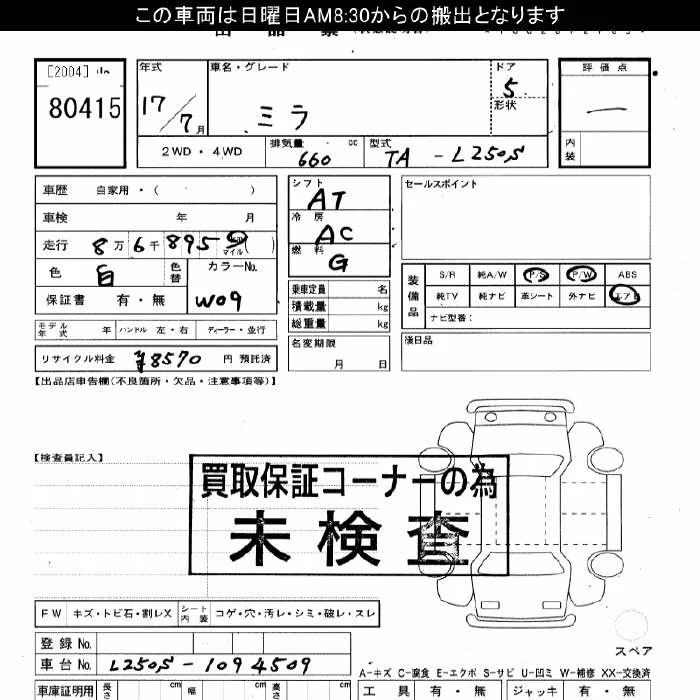 この車両は日曜日AM8:30からの搬出となります
[2004]
80415
年式
17/7月
車名・グレード
ミラ
ドア
5
形状
評価点
―
内装
2WD・4WD
排気量 660 cc
型式 TA - L250S
車歴 自家用・( )
車検 年 月
走行 8万6千895 km マイル( )
色 白 色替
カラーNo. W09
保証書 有・無
モデル年式 年 ハンドル 左・右 ディーラー・並行
リサイクル料金 ¥8570 円 預託済
シフト AT
冷房 AC
燃料 G
乗車定員 名
積載量 kg
総重量 kg
名変期限
月 日
セールスポイント
装備品
S/R 純A/W P/S P/W ABS
純TV 純ナビ 革シート 外ナビ エアB
ナビ型番:
後日品
【出品店申告欄(不良箇所・欠品・注意事項等)】
【検査員記入】
買取保証コーナーの為
未検査
FW キズ・トビ石・割レX シート内装 コゲ・穴・汚レ・シミ・破レ・スレ
スペア
登録No.
車台No. L250S-1094509
A-キズ C-腐食 E-エクボ S-サビ U-凹ミ W-補修 XX-交換済
車庫証明用 長さ cm 幅 cm 高さ cm
工具 有・無 ジャッキ 有・無